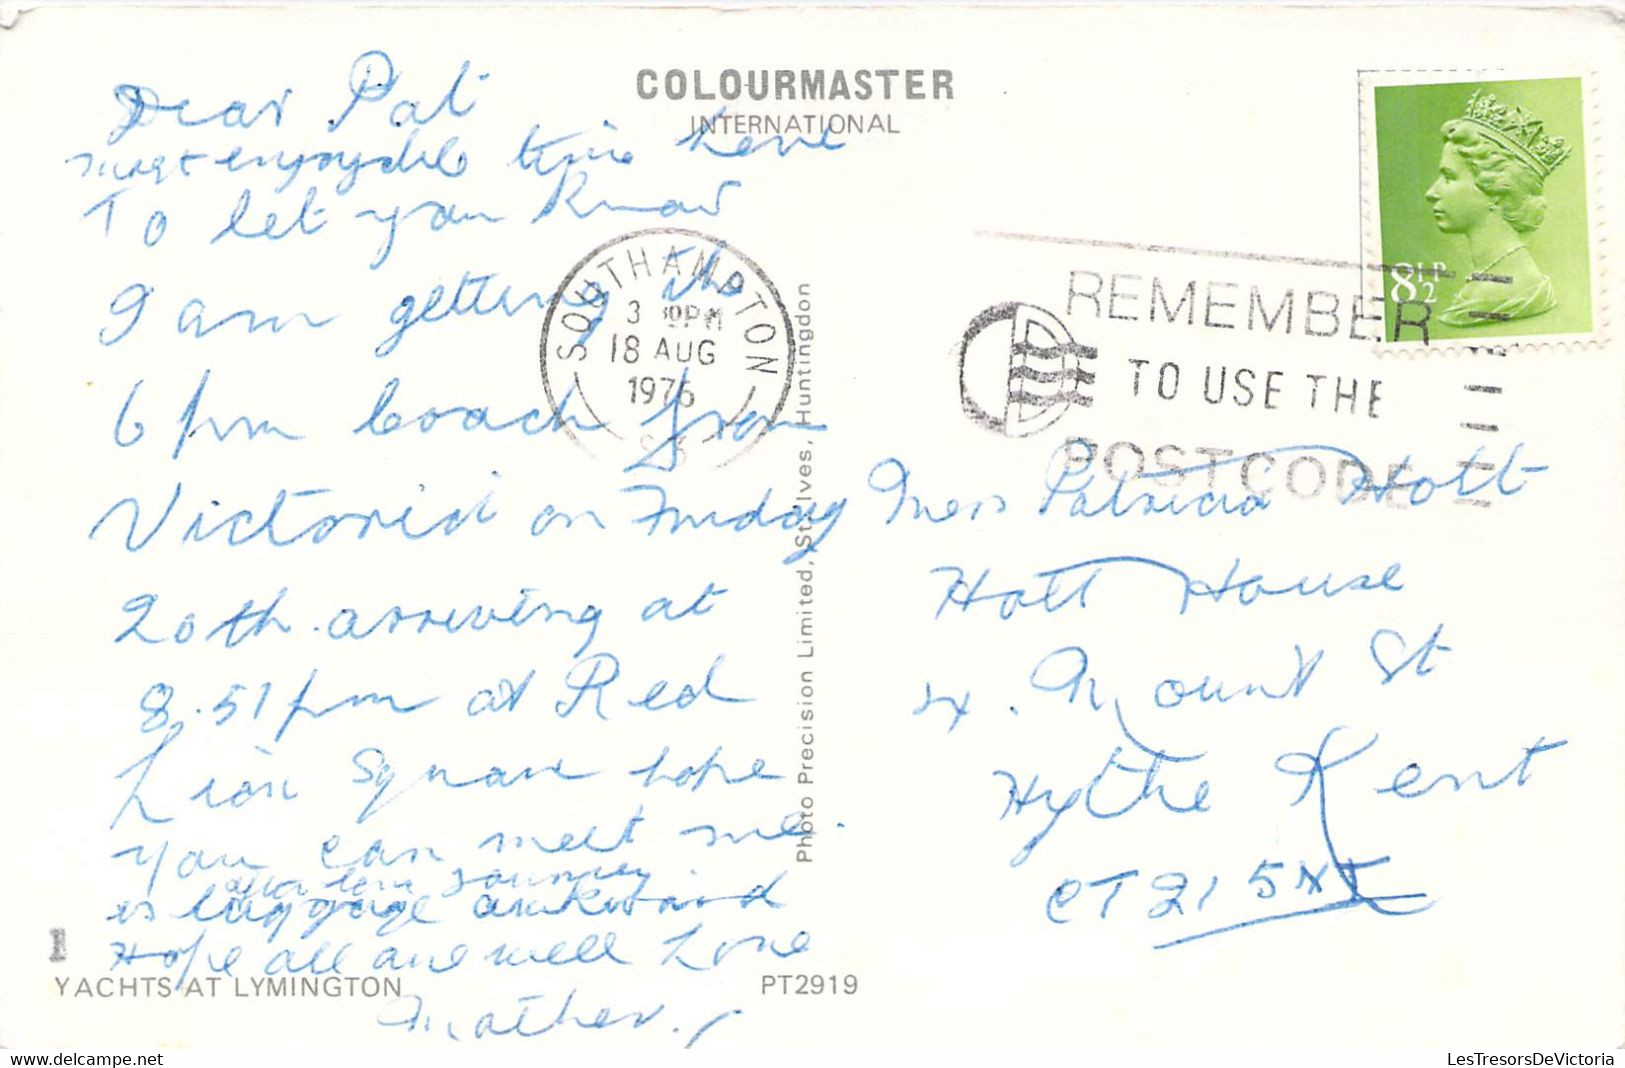 COLOURMASTER
INTERNATIONAL
Dear Pat
most enjoyable time here
To let you know
I am getting the
6 pm coach from
Victoria on Friday
20th. arriving at
8.51 pm at Red
Lion Square hope
you can meet me.
journey
as luggage awkward
Hope all are well Love
Mother.
YACHTS AT LYMINGTON
PT2919
Photo Precision Limited, St. Ives, Huntingdon
SOUTHAMPTON
3 PM
18 AUG
1976
REMEMBER
TO USE THE
POSTCODE
8½P
Mrs Patricia Hott
Hott House
4. Mount St
Hythe Kent
CT21 5
delcampe.net
LesTresorsDeVictoria